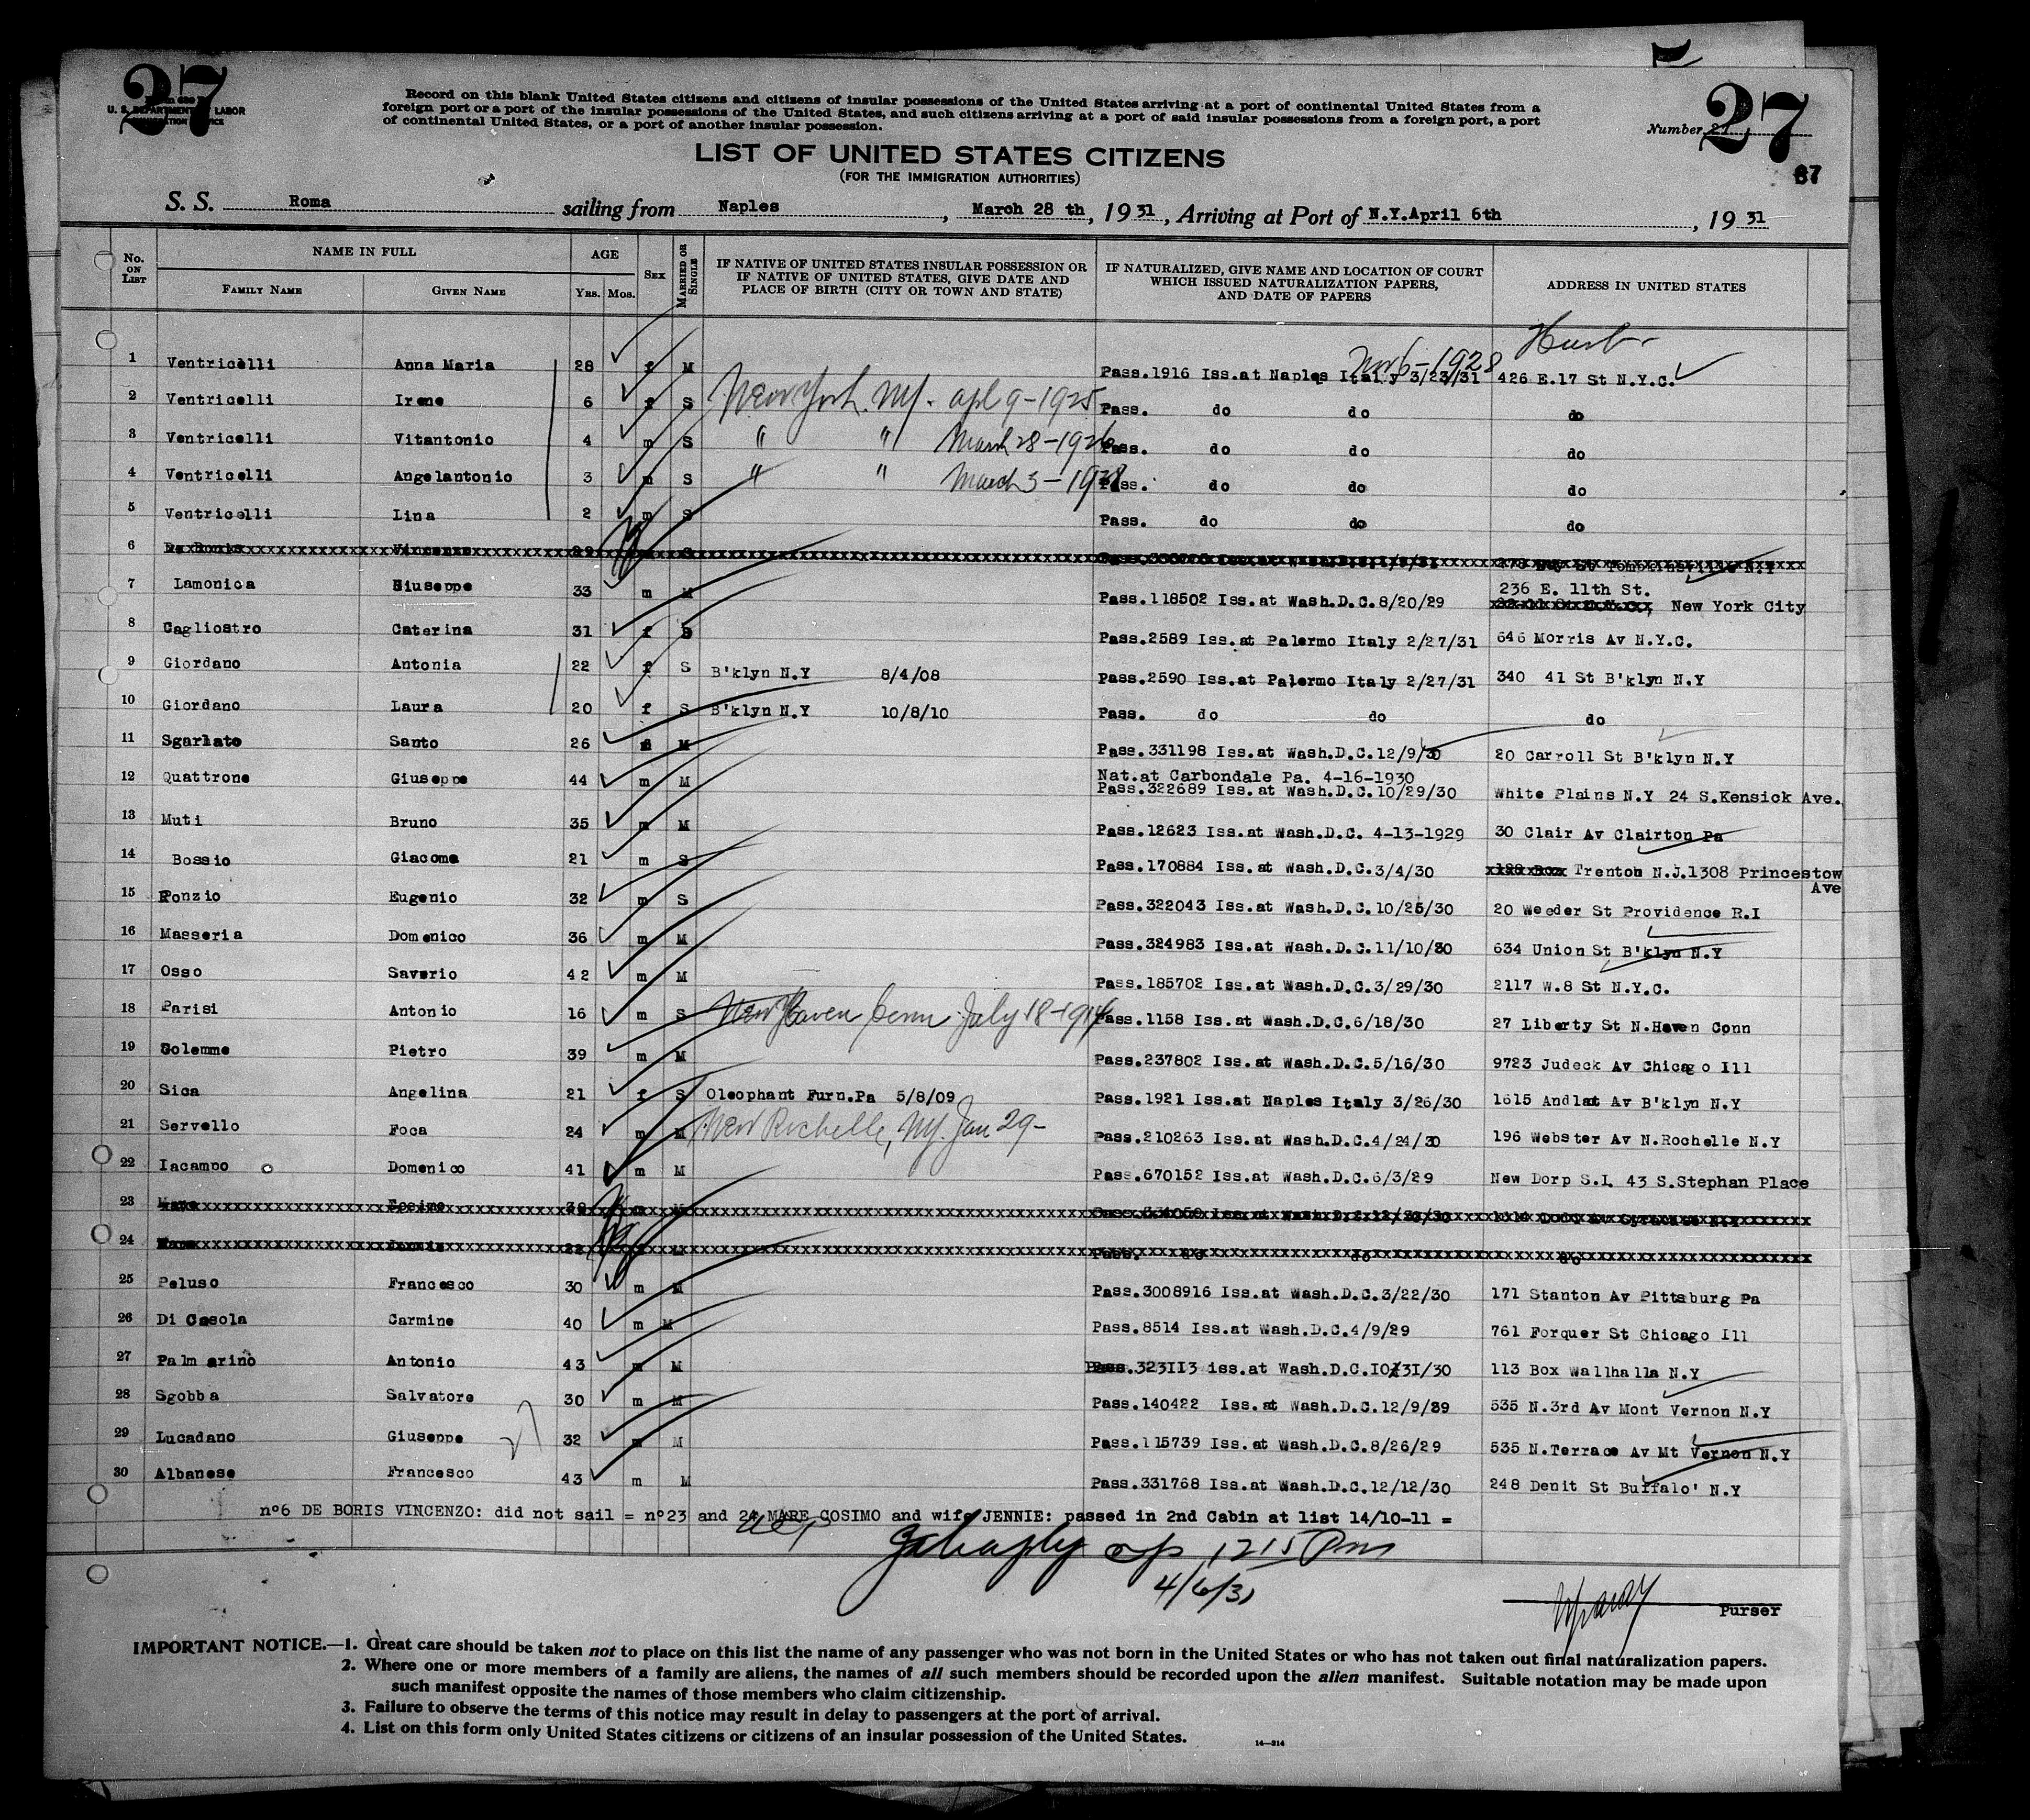 27
U. S. DEPARTMENT OF LABOR
Record on this blank United States citizens and citizens of insular possessions of the United States arriving at a port of continental United States from a
foreign port or a port of the insular possessions of the United States, and such citizens arriving at a port of said insular possessions from a foreign port, a port
of continental United States, or a port of another insular possession.
Number 27
27
67
LIST OF UNITED STATES CITIZENS
(FOR THE IMMIGRATION AUTHORITIES)
S. S. Roma sailing from Naples, March 28 th, 1931, Arriving at Port of N.Y.April 6th, 1931
No. ON LIST NAME IN FULL FAMILY NAME GIVEN NAME AGE YRS. MOS. SEX MARRIED OR SINGLE IF NATIVE OF UNITED STATES INSULAR POSSESSION OR IF NATIVE OF UNITED STATES, GIVE DATE AND PLACE OF BIRTH (CITY OR TOWN AND STATE) IF NATURALIZED, GIVE NAME AND LOCATION OF COURT WHICH ISSUED NATURALIZATION PAPERS, AND DATE OF PAPERS ADDRESS IN UNITED STATES
1 Ventricelli Anna Maria 28 f M Pass.1916 Iss.at Naples Italy 3/23/31 426 E.17 St N.Y.C.
2 Ventricelli Irene 6 f S New York. NY. apl 9-1925 Pass. do do do
3 Ventricelli Vitantonio 4 m S " " March 28-1926 Pass. do do do
4 Ventricelli Angelantonio 3 m S " " March 3-1928 Pass. do do do
5 Ventricelli Lina 2 m S Pass. do do do
6 Vincenzo 29
7 Lamonica Giuseppe 33 m M Pass.118502 Iss.at Wash.D.C.8/20/29 236 E. 11th St. New York City
8 Cagliostro Caterina 31 f Pass.2589 Iss.at Palermo Italy 2/27/31 646 Morris Av N.Y.C.
9 Giordano Antonia 22 f S B'klyn N.Y 8/4/08 Pass.2590 Iss.at Palermo Italy 2/27/31 340 41 St B'klyn N.Y
10 Giordano Laura 20 f S B'klyn N.Y 10/8/10 Pass. do do do
11 Sgarlato Santo 26 M Pass.331198 Iss.at Wash.D.C.12/9/30 20 Carroll St B'klyn N.Y
12 Quattrone Giuseppe 44 m M Nat.at Carbondale Pa. 4-16-1930
Pass.322689 Iss.at Wash.D.C.10/29/30 White Plains N.Y 24 S.Kensick Ave.
13 Muti Bruno 35 m M Pass.12623 Iss.at Wash.D.C. 4-13-1929 30 Clair Av Clairton Pa
14 Bossio Giacome 21 m S Pass.170884 Iss.at Wash.D.C.3/4/30 Trenton N.J.1308 Princestow Ave
15 Ponzio Eugenio 32 m S Pass.322043 Iss.at Wash.D.C.10/25/30 20 Weeder St Providence R.I
16 Masseria Domenico 36 m M Pass.324983 Iss.at Wash.D.C.11/10/30 634 Union St B'klyn N.Y
17 Osso Saverio 42 m M Pass.185702 Iss.at Wash.D.C.3/29/30 2117 W.8 St N.Y.C.
18 Parisi Antonio 16 m S New Haven Conn July 18-1914 Pass.1158 Iss.at Wash.D.C.6/18/30 27 Liberty St N.Haven Conn
19 Solemme Pietro 39 m M Pass.237802 Iss.at Wash.D.C.5/16/30 9723 Judeck Av Chicago Ill
20 Sica Angelina 21 f S Oleophant Furn.Pa 5/8/09 Pass.1921 Iss.at Naples Italy 3/26/30 1615 Andlat Av B'klyn N.Y
21 Servello Foca 24 m M New Rochelle, NY. Jan 29- Pass.210263 Iss.at Wash.D.C.4/24/30 196 Webster Av N.Rochelle N.Y
22 Iacampo Domenico 41 m M Pass.670152 Iss.at Wash.D.C.6/3/29 New Dorp S.I. 43 S.Stephan Place
23 Cosimo m M
24 Jennie Pass. do do do
25 Peluso Francesco 30 m M Pass.3008916 Iss.at Wash.D.C.3/22/30 171 Stanton Av Pittsburg Pa
26 Di Casola Carmine 40 m M Pass.8514 Iss.at Wash.D.C.4/9/29 761 Forquer St Chicago Ill
27 Palmarino Antonio 43 m M Pass.323113 iss.at Wash.D.C.10/31/30 113 Box Wallhalla N.Y
28 Sgobba Salvatore 30 m M Pass.140422 Iss.at Wash.D.C.12/9/29 535 N.3rd Av Mont Vernon N.Y
29 Lucadano Giuseppe 32 m M Pass.115739 Iss.at Wash.D.C.8/26/29 535 N.Terrace Av Mt Vernon N.Y
30 Albanese Francesco 43 m M Pass.331768 Iss.at Wash.D.C.12/12/30 248 Denit St Buffalo' N.Y
nº6 DE BORIS VINCENZO: did not sail = nº23 and 24 MARE COSIMO and wife JENNIE: passed in 2nd Cabin at list 14/10-11 =
1215 Pm
4/6/31
Purser
IMPORTANT NOTICE.—1. Great care should be taken not to place on this list the name of any passenger who was not born in the United States or who has not taken out final naturalization papers.
2. Where one or more members of a family are aliens, the names of all such members should be recorded upon the alien manifest. Suitable notation may be made upon
such manifest opposite the names of those members who claim citizenship.
3. Failure to observe the terms of this notice may result in delay to passengers at the port of arrival.
4. List on this form only United States citizens or citizens of an insular possession of the United States.
14—314